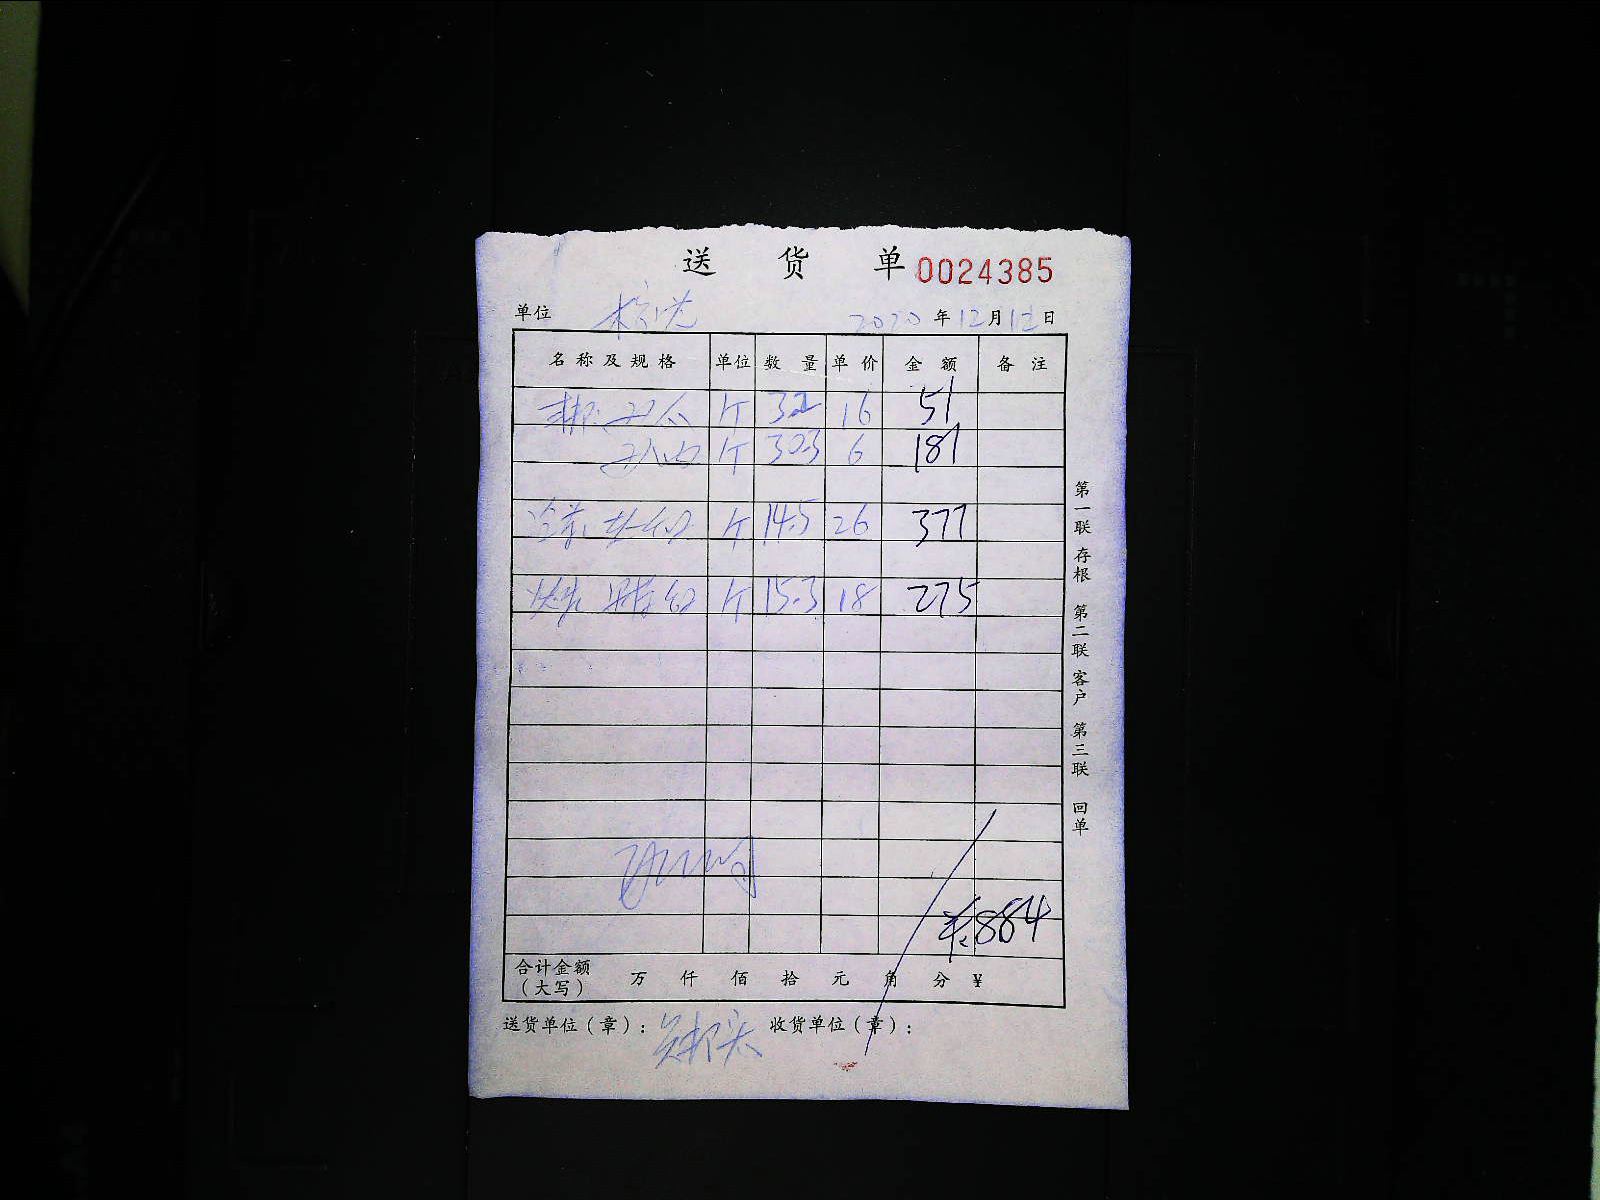 送 货 单 0024385
单位 2020 年 12 月 12 日
名称及规格 单位 数量 单价 金额 备注
个 3.2 16 51
个 30.3 6 181
个 14.5 26 377
个 15.3 18 275
¥:884
合计金额（大写） 万 仟 佰 拾 元 角 分 ¥
送货单位（章）： 收货单位（章）：
第一联 存根 第二联 客户 第三联 回单